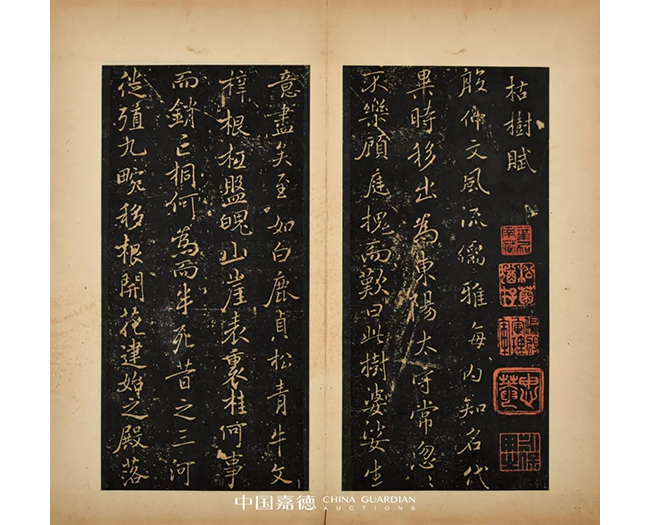 枯樹賦
殷仲文風流儒雅海內知名代
異時移出為東陽太守常忽〻
不樂顧庭槐而歎曰此樹婆娑生
意盡矣至如白鹿貞松青牛文
梓根柢盤魄山崖表裏桂何事
而銷亡桐何為而半死昔之三河
徙殖九畹移根開花建始之殿落
中国嘉德 CHINA GUARDIAN
AUCTIONS